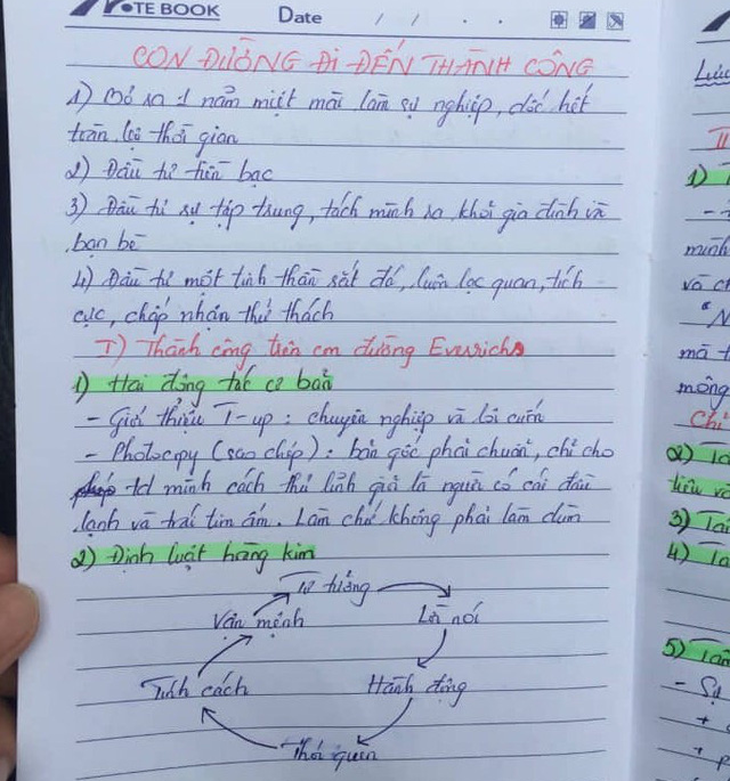 NOTE BOOK Date / / . .
CON ĐƯỜNG ĐI ĐẾN THÀNH CÔNG
1) Bỏ ra 1 năm miệt mài làm sự nghiệp, dốc hết
toàn bộ thời gian
2) Đầu tư tiền bạc
3) Đầu tư sự tập trung, tách mình ra khỏi gia đình và
bạn bè
4) Đầu tư một tinh thần sắt đá, luôn lạc quan, tích
cực, chấp nhận thử thách
I) Thành công trên con đường Everrichs
1) Hai động tác cơ bản
- Giới thiệu T-up : chuyên nghiệp và lôi cuốn
- Photocopy (sao chép) : bản gốc phải chuẩn, chỉ cho
mình cách thủ lĩnh giỏi là người có cái đầu
lạnh và trái tim ấm. Làm chứ không phải làm dùm
2) Định luật hoàng kim
Tư tưởng
Vận mệnh Lời nói
Tính cách Hành động
Thói quen
Lúc
II
1)
minh
và
mà
mông
2)
3)
4)
5)